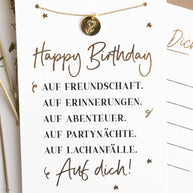 Happy Birthday
AUF FREUNDSCHAFT.
AUF ERINNERUNGEN.
AUF ABENTEUER.
AUF PARTYNÄCHTE.
AUF LACHANFÄLLE.
Auf dich!